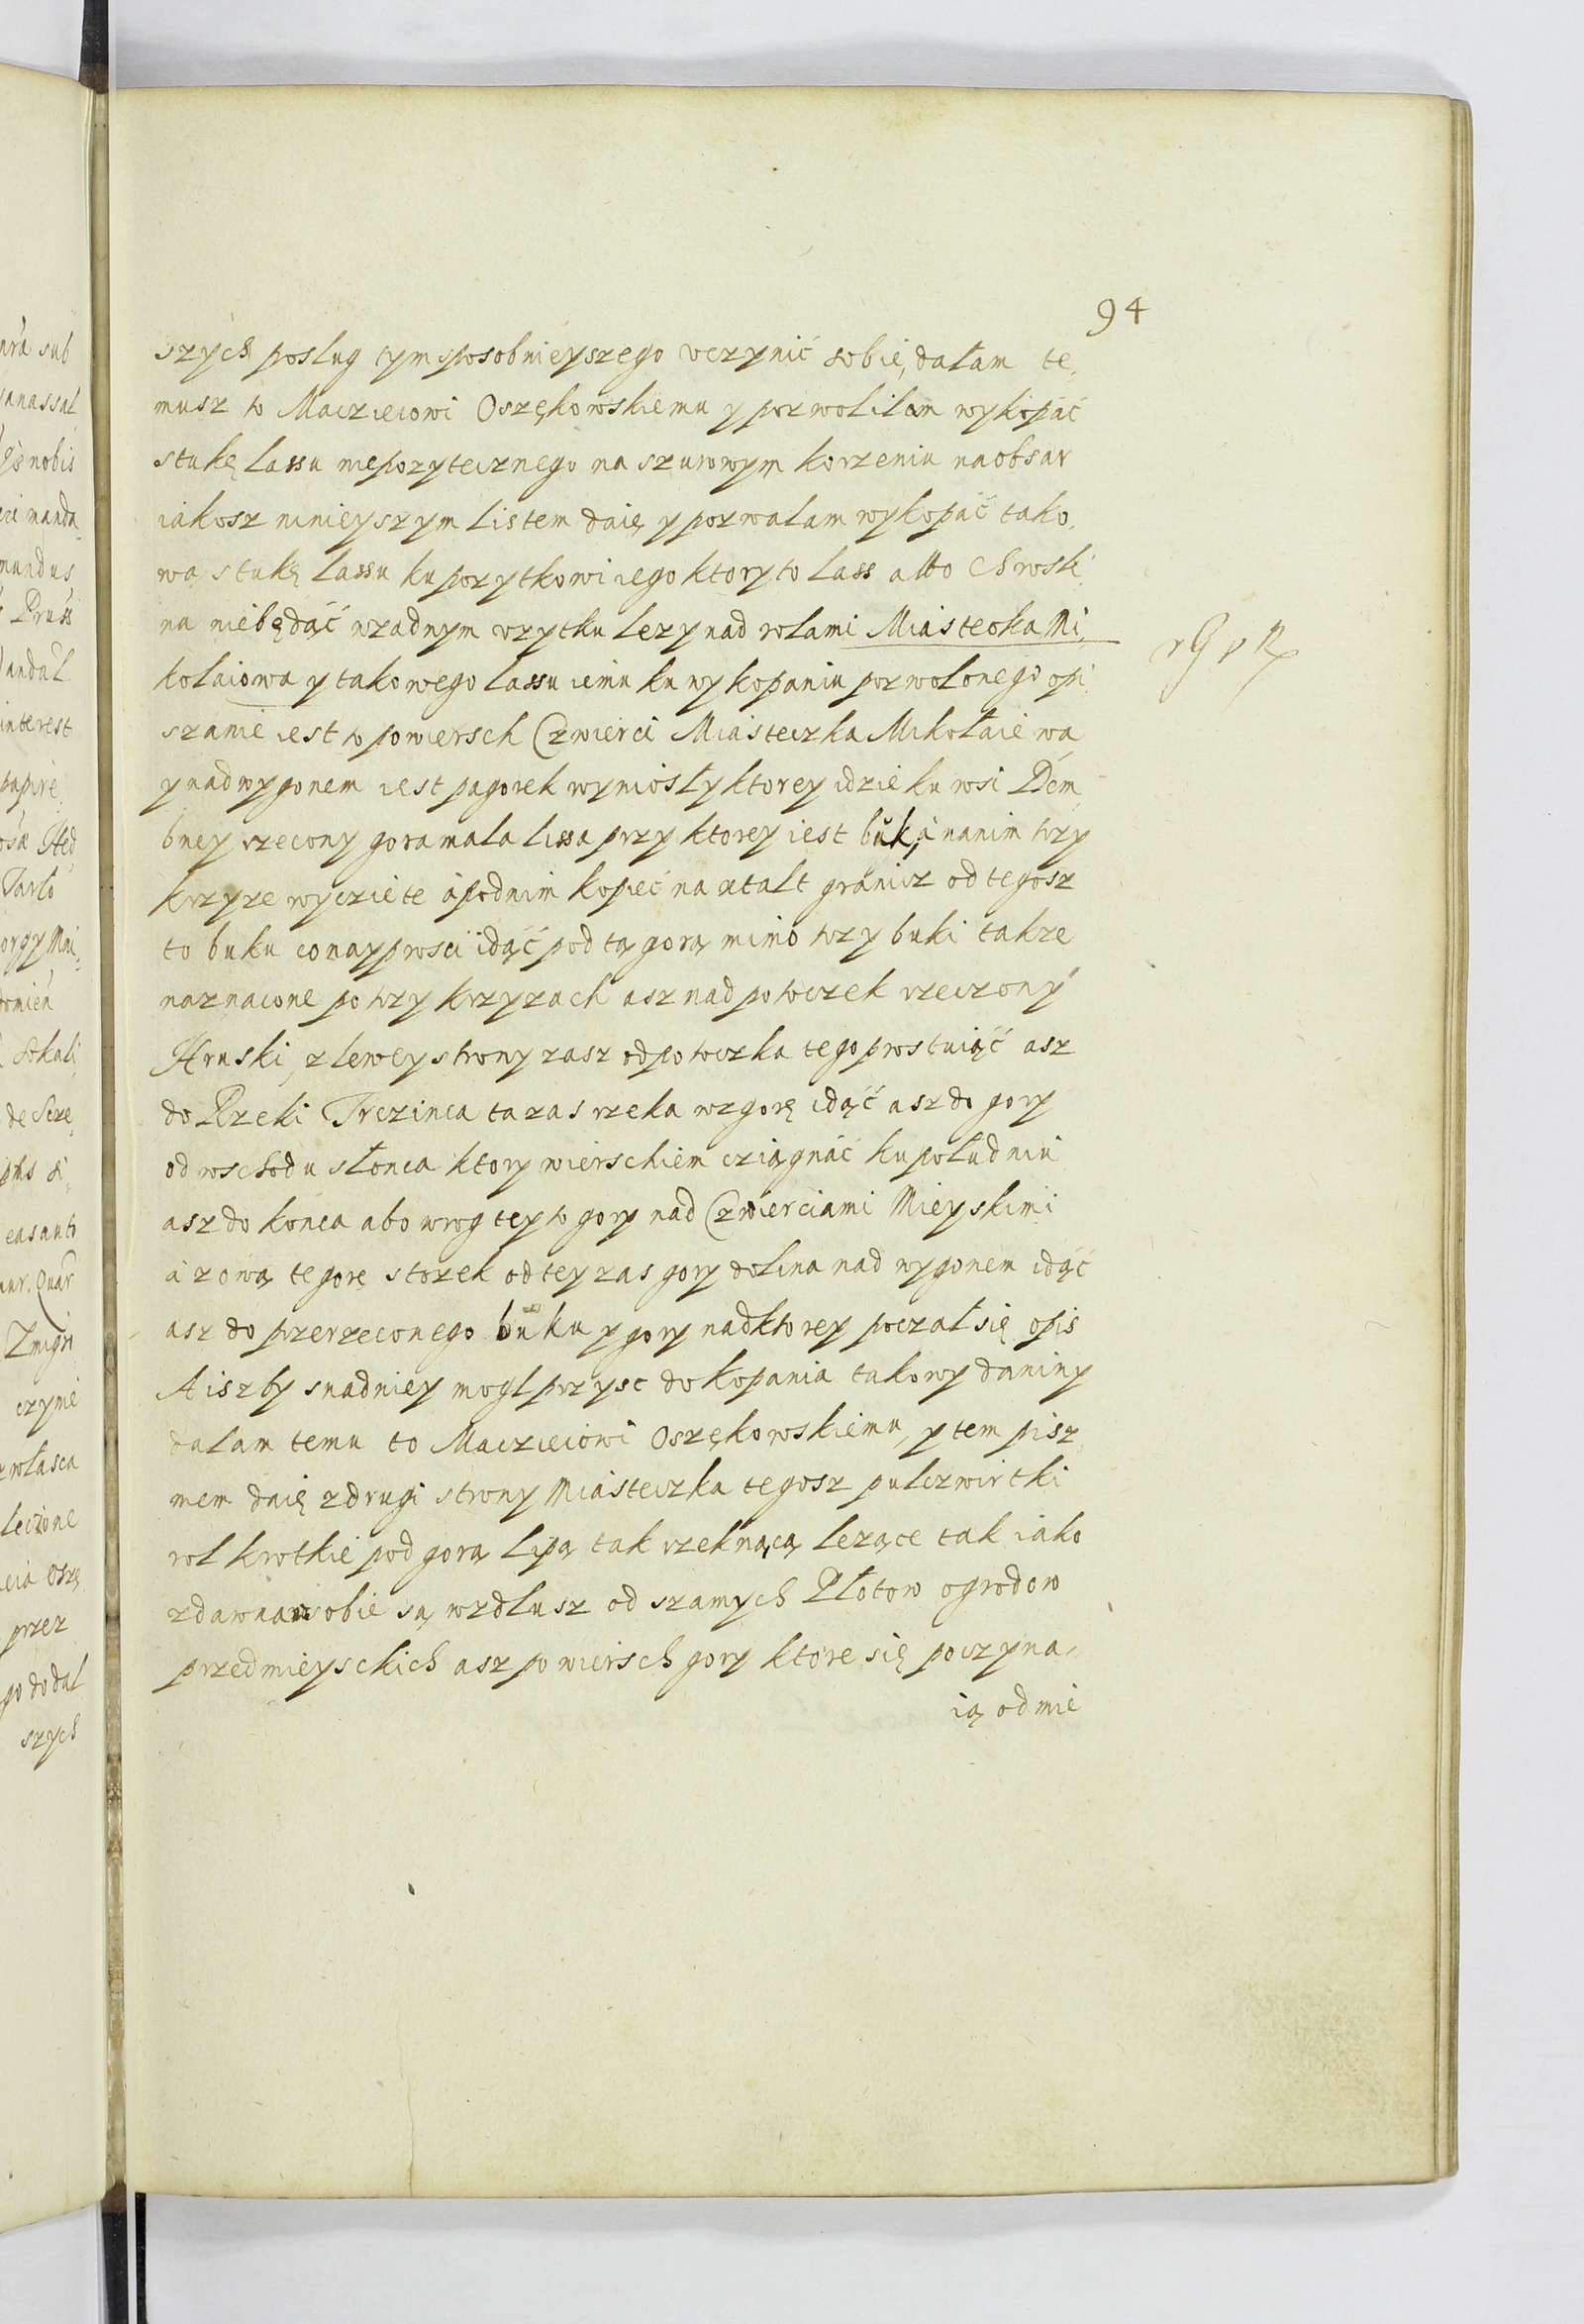 94
szych poslug tym sposobnieyszego vczynić sobie, dałam te,
musz to Maczieiowi Oszękowskiemu y pozwolilam wykopać
stukę Lassu niepozytecznego na szurowym korzeniu na obsar
iakosz ninieyszym listem daię y pozwalam wykopać tako,
wą stukę lassu ku pozytkowi iego ktory to lass albo Chrosti
na niebędąć wzadnym vzytku lezy nad rolami Miasteczka Mi,
kolaiowa y takowego lassu iemu ku wykopaniu pozwolonego opi
szanie iest to powiersch Czwierci Miasteczka Mikołaiewa
y nad wygonem iest pagorek wyniosły ktorey idzie ku wsi Dem
bney rzeczony gora mala lissa przy ktorey iest buk, a nanim trzy
krzyze wyciete a podnim kopieć na xtalt granicz od tegosz
to buku co nayprosci idąć pod tą gorą mimo trzy buki takze
naznacone po trzy krzyzach asz nad potoczek rzeczony
Hruski, z lewey strony zasz od potoczka tego prostuiąć asz
do Rzeki Trczinca ta zas rzeka wzgorę idąć asz do gory
od wschodu słonca ktory wierschiem cziągnąć ku poludniu
asz do konca abo wrog tey to gory nad Czwierciami Mieyskimi
a zową te gore stozek od tey zas gory dolina nad wygonem idąć
asz do przerzeconego buku y gory nad ktorey poczał się opis
A iszby snadniey mogl przysc do kopania takowy daniny
dalam temu to Maczieiowi Oszękowskiemu, y tem pisz
mem daię z drugi strony Miasteczka tegosz pulczwirtki
rol krotkie pod gorą lipą tak rzeknącą lezące tak iako
zdawna w sobie są wzdlusz od szamych Płotow ogrodow
przedmieyschich asz po wiersch gory ktore się poczyna,
ią od mie